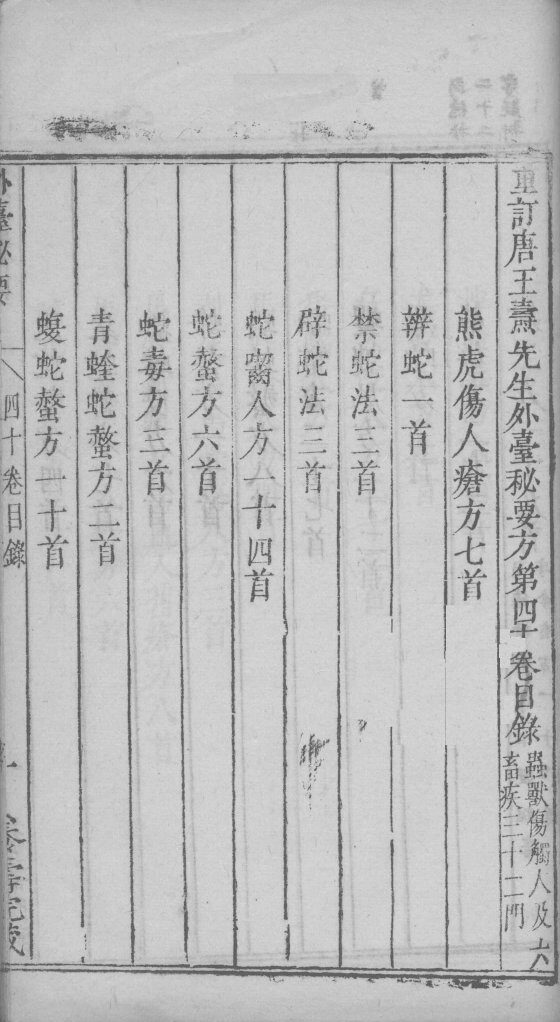 重訂唐王燾先生外臺秘要方第四十卷目錄
蟲獸傷觸人及六
畜疾三十二門
熊虎傷人瘡方七首
辨蛇一首
禁蛇法三首
辟蛇法三首
蛇嚙人方一十四首
蛇螫方六首
蛇毒方三首
青蝰蛇螫方二首
蝮蛇螫方一十首
外臺秘要
四十卷目錄
一